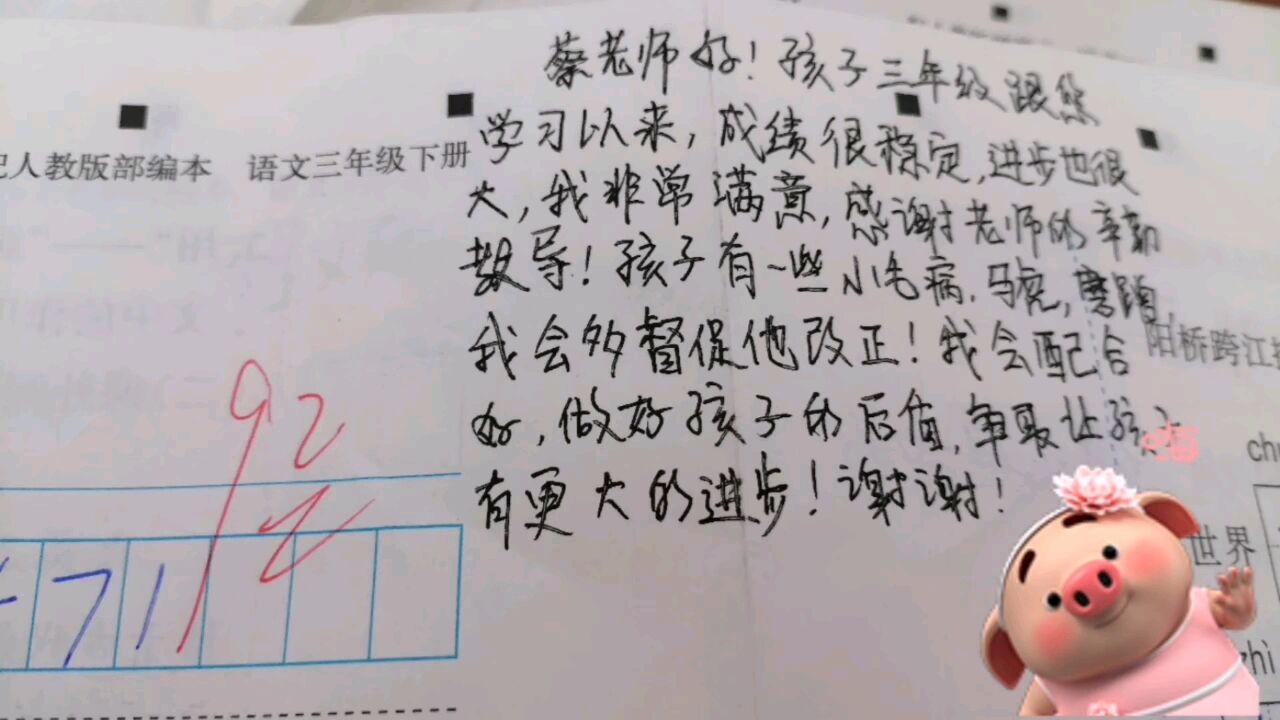 蔡老师好！孩子三年级跟您
学习以来，成绩很稳定，进步也很
大，我非常满意，感谢老师的辛勤
教导！孩子有一些小毛病，马虎，磨蹭
我会多督促他改正！我会配合
好，做好孩子的后值，争取让孩
有更大的进步！谢谢！
人教版部编本 语文三年级下册
92
71
阳桥跨江
世界